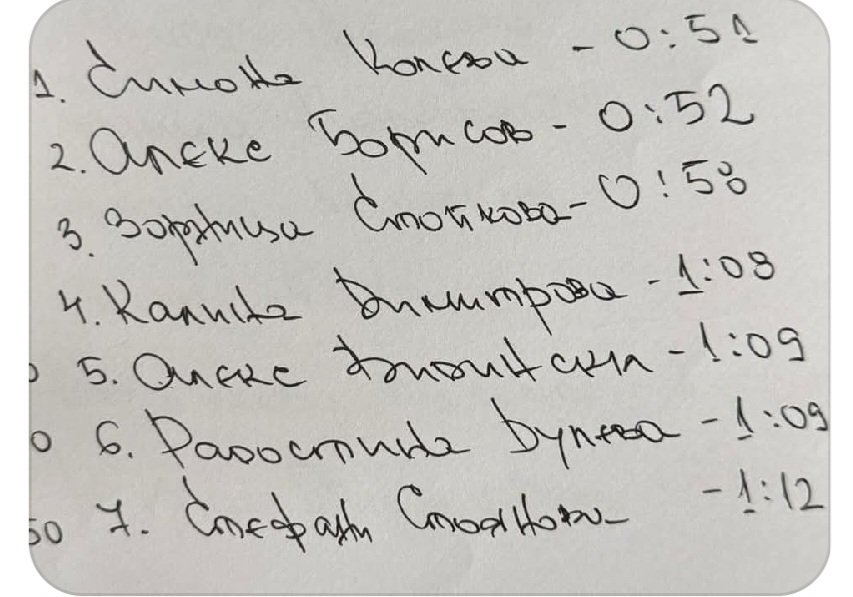 1. Симона Колева - 0:51
2. Алекс Борисов - 0:52
3. Зорница Стойкова - 0:58
4. Калина Димитрова - 1:08
5. Алекс - 1:09
0 6. Радостина Булева - 1:09
50 7. Стефани Стоянова - 1:12